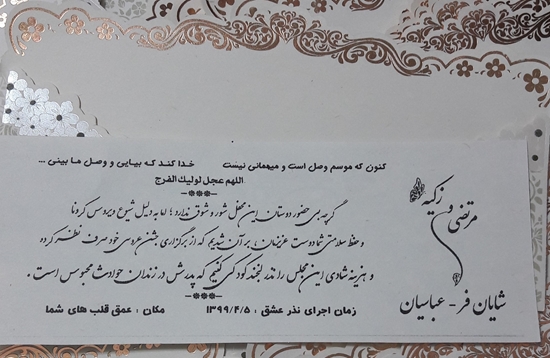 کنون که موسم وصل است و میهمانی نیست خدا کند که بیایی و وصل ما بینی ...
اللهم عجل لولیك الفرج
-***-
گرچه بی حضور دوستان این محفل شور و شوقی ندارد؛ اما به دلیل شیوع ویروس کرونا
و حفظ سلامتی شما دوست عزیزمان، بر آن شدیم که از برگزاری جشن عروسی خود صرف نظر کرده
و هزینه شادی این مجلس را نذر لبخند کودکی کنیم که پدرش در زندان حوادث محبوس است.
-***-
زمان اجرای نذر عشق : ۱۳۹۹/۴/۵ مکان : عمق قلب های شما
مرتضی و زکیه
شایان فر - عباسیان